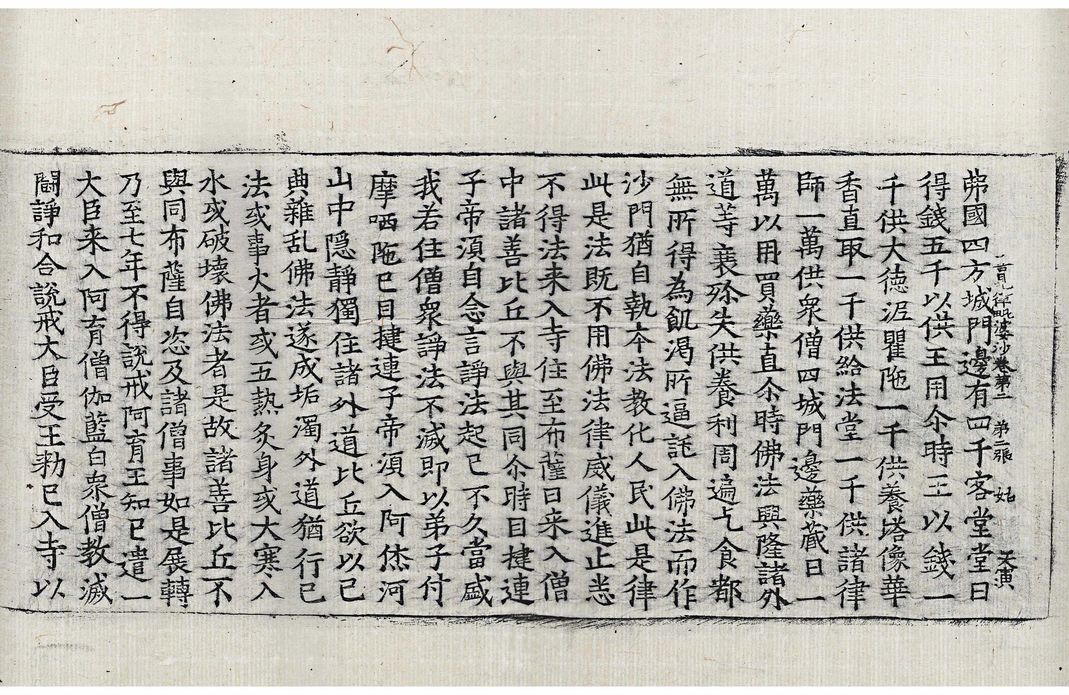 善見律毗婆沙卷第二　第二張　姑
天演
弗國四方城門邊有四千客堂堂日
得錢五千以供王用尒時王以錢一
千供大德泥瞿陁一千供養塔像華
香直取一千供給法堂一千供諸律
師一萬供衆僧四城門邊藥藏日一
萬以用買藥直尒時佛法興隆諸外
道等衰殄失供養利周遍乞食都
無所得為飢渴所逼託入佛法而作
沙門猶自執本法教化人民此是律
此是法既不用佛法律威儀進止悉
不得法来入寺住至布薩日来入僧
中諸善比丘不與其同尒時目揵連
子帝湏自念言諍法起已不久當盛
我若住僧衆諍法不滅即以弟子付
摩哂陁已目揵連子帝湏入阿烋河
山中隠静獨住諸外道比丘欲以己
典雜乱佛法遂成垢濁外道猶行己
法或事火者或五熱炙身或大寒入
水或破壞佛法者是故諸善比丘不
與同布薩自恣及諸僧事如是展轉
乃至七年不得說戒阿育王知已遣一
大臣来入阿育僧伽藍白衆僧教滅
鬪諍和合說戒大臣受王勑已入寺以